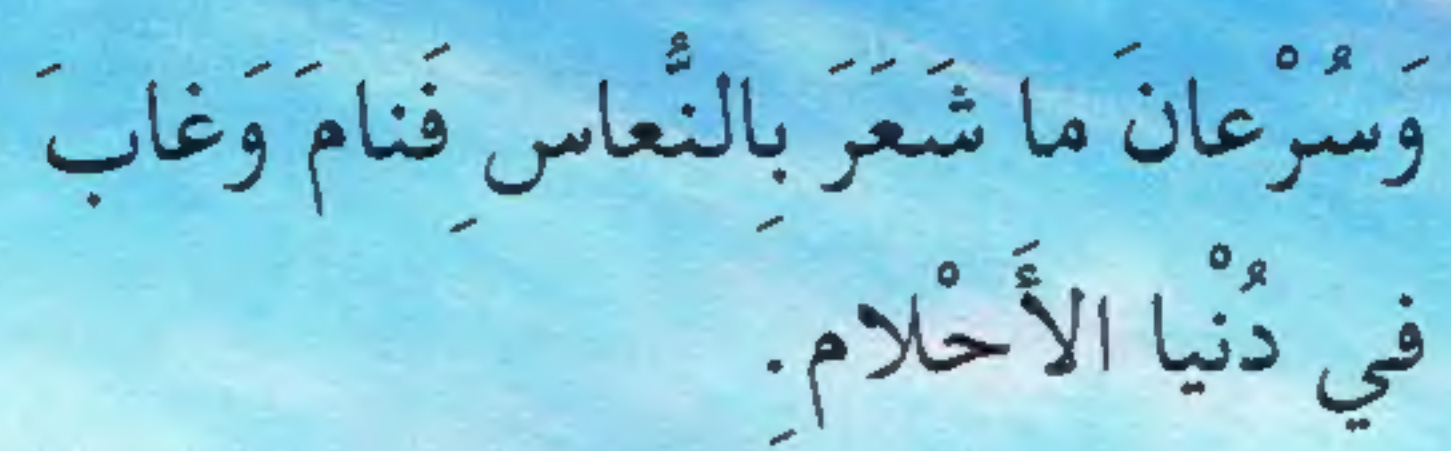 وَسُرْعانَ ما شَعَرَ بِالنُّعاسِ فَنامَ وَغابَ
في دُنْيا الأَحْلامِ.